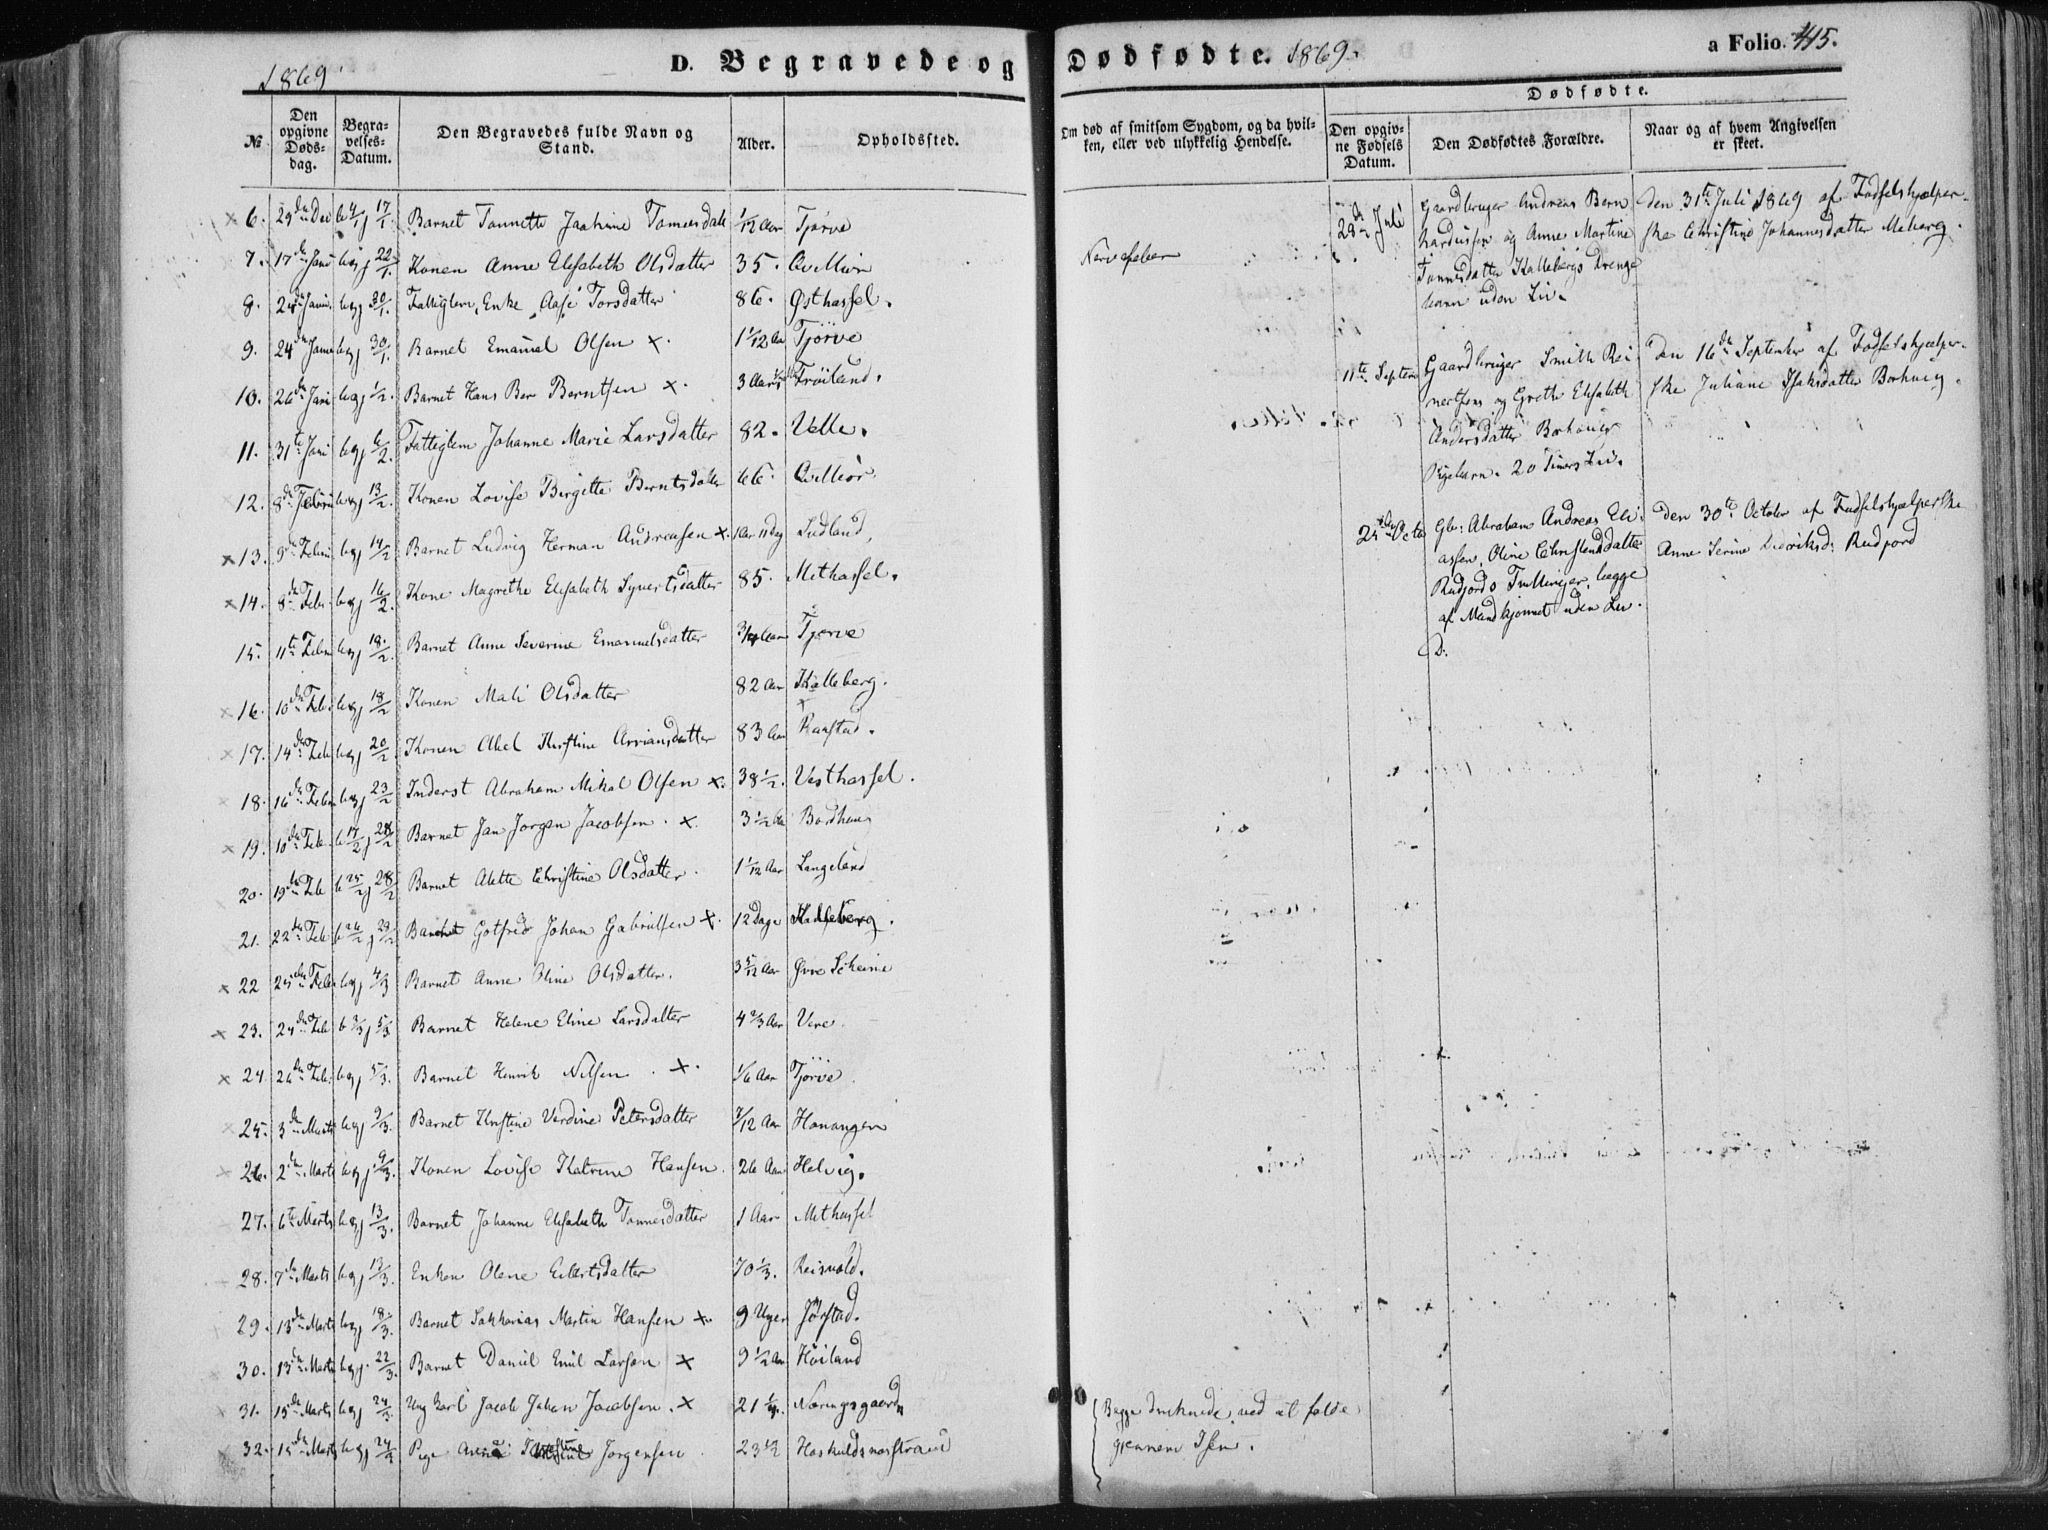 1869.
D. Begravede og Dødfødte. 1869.
a Folio. 415.
№
Den opgivne Døds-dag.
Begra-velses-Datum.
Den Begravedes fulde Navn og Stand.
Alder.
Opholdssted.
Om død af smitsom Sygdom, og da hvil-ken, eller ved ulykkelig Hendelse.
Dødfødte.
Den opgiv-ne Fødsels Datum.
Den Dødfødtes Forældre.
Naar og af hvem Angivelsen er skeet.
6. 29de Dec 17/1. Barnet Tannette Jaakime 1/12 Aar Tjørve
7. 17de Janu begj 22/1. Konen Anne Elisabeth Olsdatter 35. Nervefeber
8. 24de Janu. begj 30/1. Fattiglem, Enke Aase Torsdatter 86. Østhassel.
9. 24de Janu begj 30/1. Barnet Emanuel Olsen x. 1 1/12 Aar Tjørve
10. 26de Janu begj 1/2. Barnet Hans Ber Berntsen x. 3 Aar Trøiland.
11. 31te Janu begj 6/2. Fattiglem Johanne Marie Larsdatter 82. Velle.
12. 8de Februa begj 13/2. Konen Lovise Birgitte Berntsdatter 66. Qvillior.
13. 9de Februa begj 14/2 Barnet Ludvig Herman Andreasen x. 1 Aar 11 Dag
14. 8de Febr begj 16/2. Kone Magrethe Elisabeth Syvertsdatter 85. Methassel.
15. 11te Febr begj 18/2. Barnet Anne Severine Emanuelsdatter 3/4 Aar Tjørve
16. 10de Febr. begj 18/2 Konen Mali Olsdatter 82 Aar Kalleberg.
17. 14de Febr begj 20/2 Konen Abel Kirstine Arriansdatter 83 Aar Raastad.
18. 16de Febr begj 23/2 Inderst Abraham Mikal Olsen x. 38 1/2. Vesthassel.
19. 10de Feb. b 17/2 j 28/2 Barnet Jan Jørgen Jacobsen. x. 3 1/2 Aar Bordhaug
20. 19de Feb b 25/2 j 28/2 Barnet Alette Christine Olsdatter. 1 1/12 Aar Langeland
21. 22de Feb b 26/2 j Barnet Gotfred Johan Gabrielsen x. 12 Dage Kalleberg.
22 25de Feb begj 4/3 Barnet Anne Oline Olsdatter. 3 5/12 Aar Øvre Skeine
23. 24de Feb b 3/3 j 5/3 Barnet Helene Eline Larsdatter 4 2/3 Aar Vere.
24. 26de Feb. begj 5/3. Barnet Henrik Nilsen. x. 1/6 Aar Tjørve.
25. 3de Marts begj 9/3. Barnet Kirstine Verdine Petersdatter 7/12 Aar Hanangen
26. 2de Marts begj 9/3. Konen Lovise Katrine Hansen. 26 Aar Helvig.
27. 6te Marts begj 13/3. Barnet Johanne Elisabeth Tønnesdatter 1 Aar Methassel
28. 7de Marts begj 13/3. Enken Olene Eilertsdatter 70 1/3. Reisvold.
29. 13de Marts begj 18/3. Barnet Sakkarias Martin Hansen x. 9 Uger Jørstad.
30. 13de Marts begj. 22/3. Barnet Daniel Emil Larsen x 9 1/2 Aar Høiland
31. 15de Marts begj 24/3. Ung karl Jacob Johan Jacobsen. x 21 Næringsgaarden
32. 15de Marts begj 24/3 Pige Anne Jørgensen. 23 1/2
Begge druknede, ved at falde
gjennem Isen.
28de Juli
Gaardbruger Andreas Bern
hardussen og Anne Martine
Tønnesdatter Kallebergs Drenge
barn uden Liv.
Den 31te Juli 1869 af Fødselshjælper-
ske Christine Johannesdatter Meberg.
11te Septem
Gaardbruger Smith Rei
nertsens og Grethe Elisabeth
Andersdatter Borhaug
Pigebarn. 20 Timers Liv.
Den 16de September af Fødselshjælper-
ske Juliane Isaksdatter Borhaug.
Octo
Gbr: Abraham Andreas Eli-
assen, Oline Christensdatter
Rudjords Tvillinger, begge
af Mandkjønnet uden Liv.
D.
Den 30te October af Fødselshjælperske
Anne Serine Didriksd: Rudjord